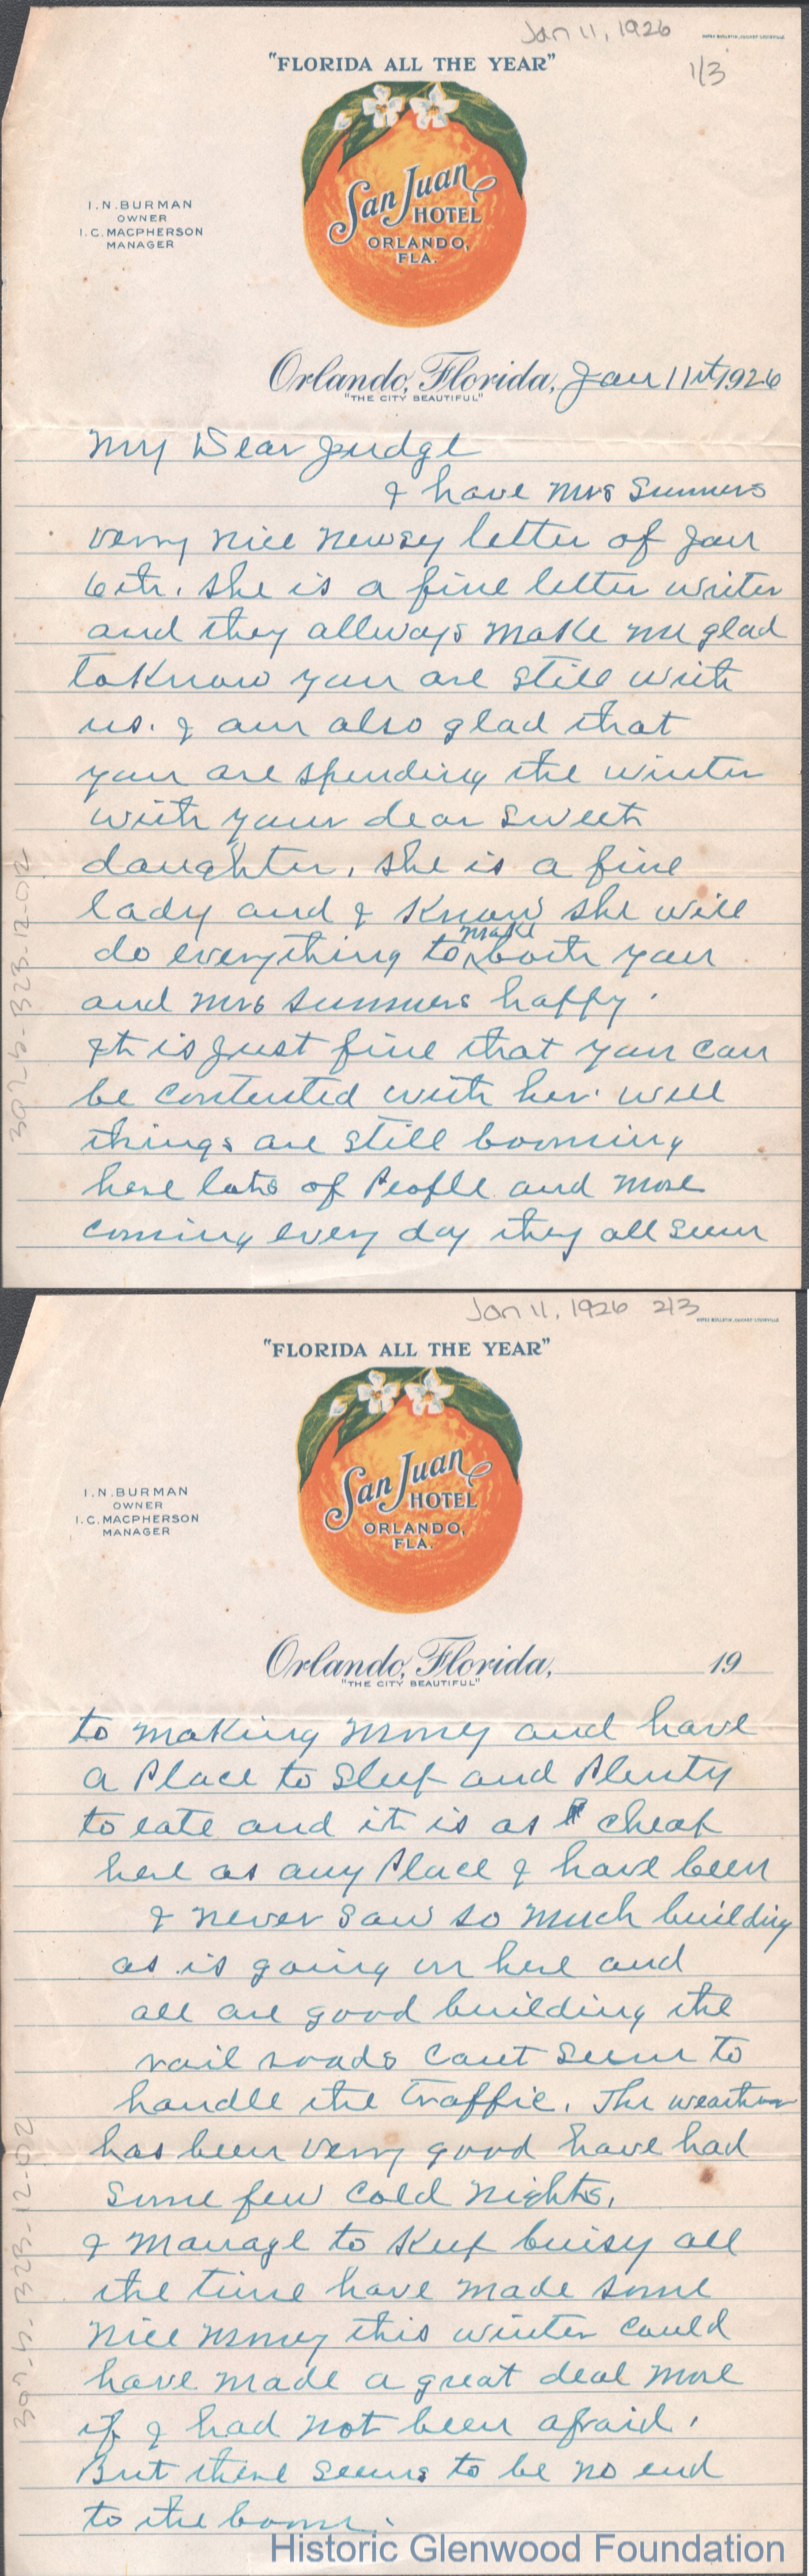 Jan 11, 1926
1/3
"FLORIDA ALL THE YEAR"
San Juan
HOTEL
ORLANDO,
FLA.
I.N.BURMAN
OWNER
I.C.MACPHERSON
MANAGER
Orlando, Florida, Jan 11st 1926
"THE CITY BEAUTIFUL"
My Dear Judge
I have Mrs Summers
verry nice newsy letter of Jan
6eth. She is a fine letter writer
and they allways make me glad
to know you are still with
us. I am also glad that
you are spending the winter
with your dear sweet
daughter, she is a fine
lady and I know she will
do everything to make both you
and Mrs Summers happy.
It is just fine that you can
be contented with her. well
things are still booming
here lots of People and more
coming every day they all seem
Jan 11, 1926 2/3
"FLORIDA ALL THE YEAR"
San Juan
HOTEL
ORLANDO,
FLA.
I.N.BURMAN
OWNER
I.C.MACPHERSON
MANAGER
Orlando, Florida, 19
"THE CITY BEAUTIFUL"
to making money and have
a Place to sleep and Plenty
to eate and it is as cheap
here as any Place I have been
I never saw so much building
as is going on here and
all are good building the
rail roads cant seem to
handle the traffic. The weather
has been verry good have had
some few cold nights.
I manage to keep buisy all
the time have made some
nice money this winter could
have made a great deal more
if I had not been afraid.
But there seems to be no end
to the boom.
Historic Glenwood Foundation